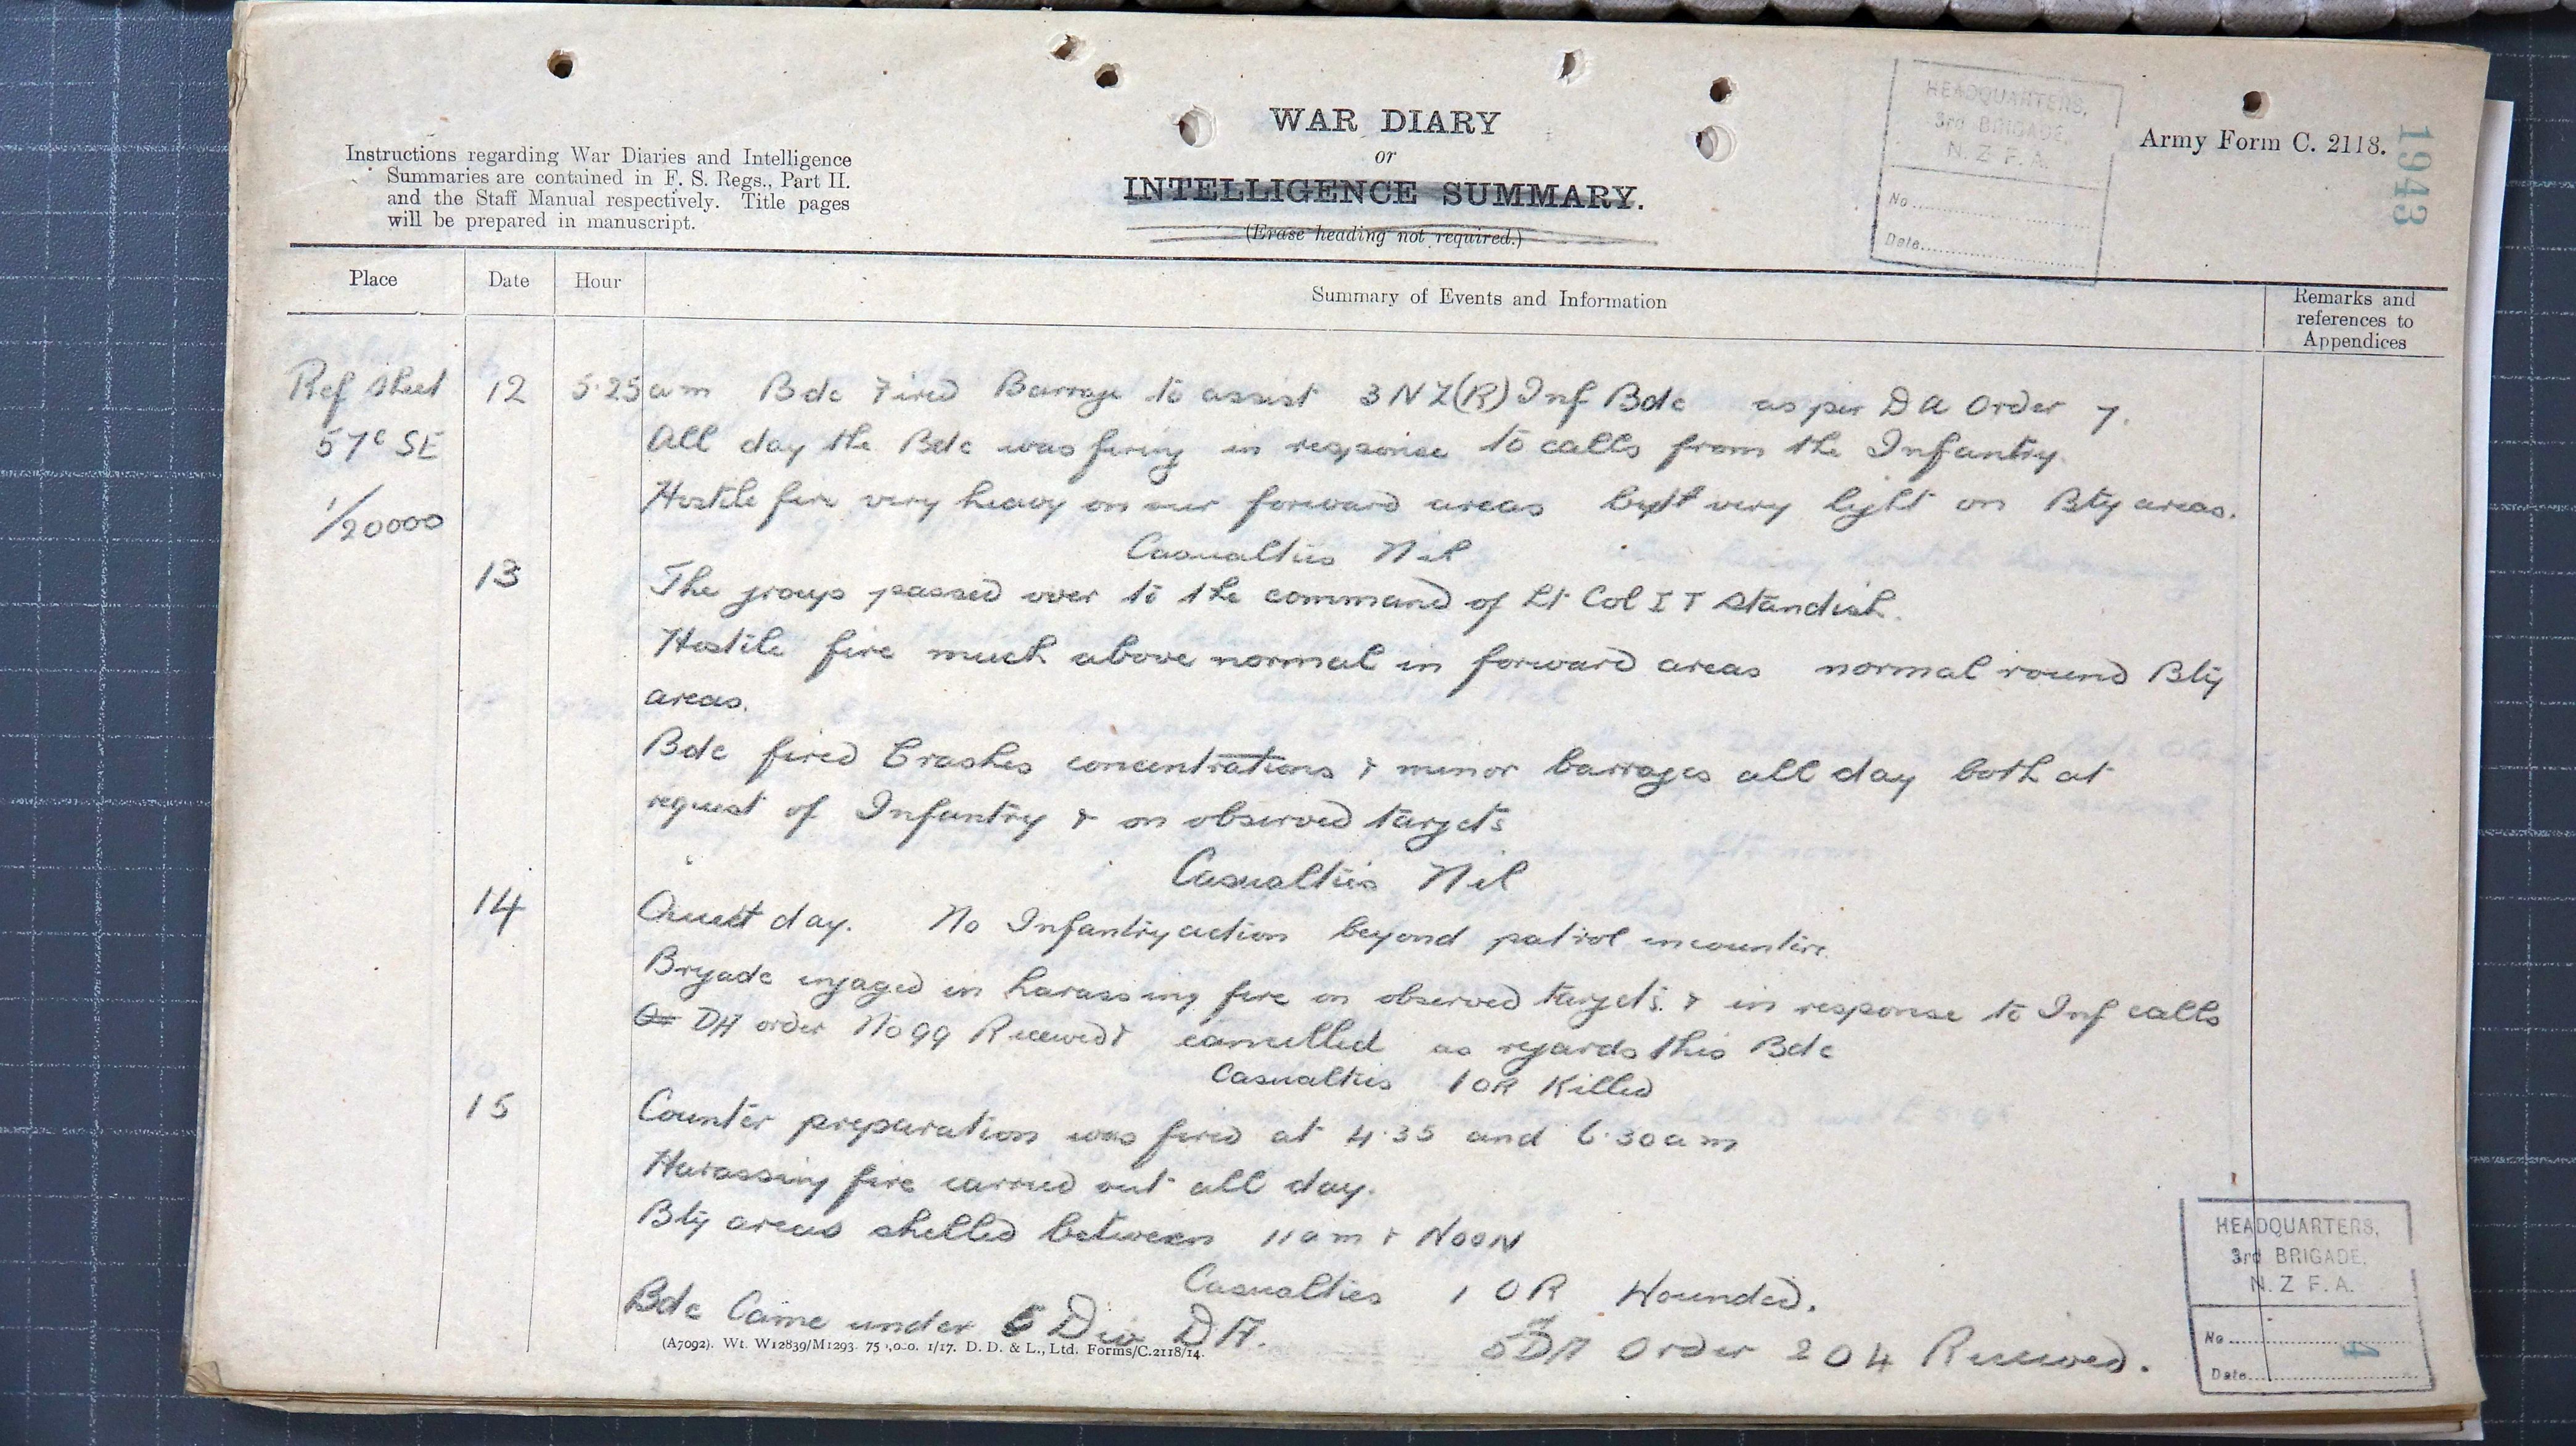 HEADQUARTERS,
3rd BRIGADE,
N. Z. F. A.
No
Date
Army Form C. 2118.
1943
WAR DIARY
or
INTELLIGENCE SUMMARY.
(Erase heading not required.)
Instructions regarding War Diaries and Intelligence
Summaries are contained in F. S. Regs., Part II.
and the Staff Manual respectively. Title pages
will be prepared in manuscript.
Place Date Hour Summary of Events and Information Remarks and references to Appendices
Ref Sheet 12 5.25 am Bde Fired Barrage to assist 3 NZ(R) Inf Bde as per DA Order 7.
57c SE All day the Bde was firing in response to calls from the Infantry.
1/20000 Hostile fire very heavy on our forward areas but very light on Bty areas.
Casualties Nil
13 The group passed over to the command of Lt Col I T Standish.
Hostile fire much above normal in forward areas normal round Bty
areas.
Bde fired Crashes concentrations & minor barrages all day both at
request of Infantry & on observed targets
Casualties Nil
14 Quiet day. No Infantry action beyond patrol encounters.
Brigade engaged in harassing fire on observed targets & in response to Inf calls
DA order No 99 Received & cancelled as regards this Bde
Casualties 1 OR Killed
15 Counter preparation was fired at 4.35 and 6.30 am
Harassing fire carried out all day.
Bty areas shelled between 11 am & NOON
Casualties 1 OR Wounded.
Bde Came under 5 Div DA. 5 DA Order 204 Received.
(A7092). Wt. W12839/M1293. 75,000. 1/17. D. D. & L., Ltd. Forms/C.2118/14.
HEADQUARTERS,
3rd BRIGADE,
N. Z F. A.
No
Date
4